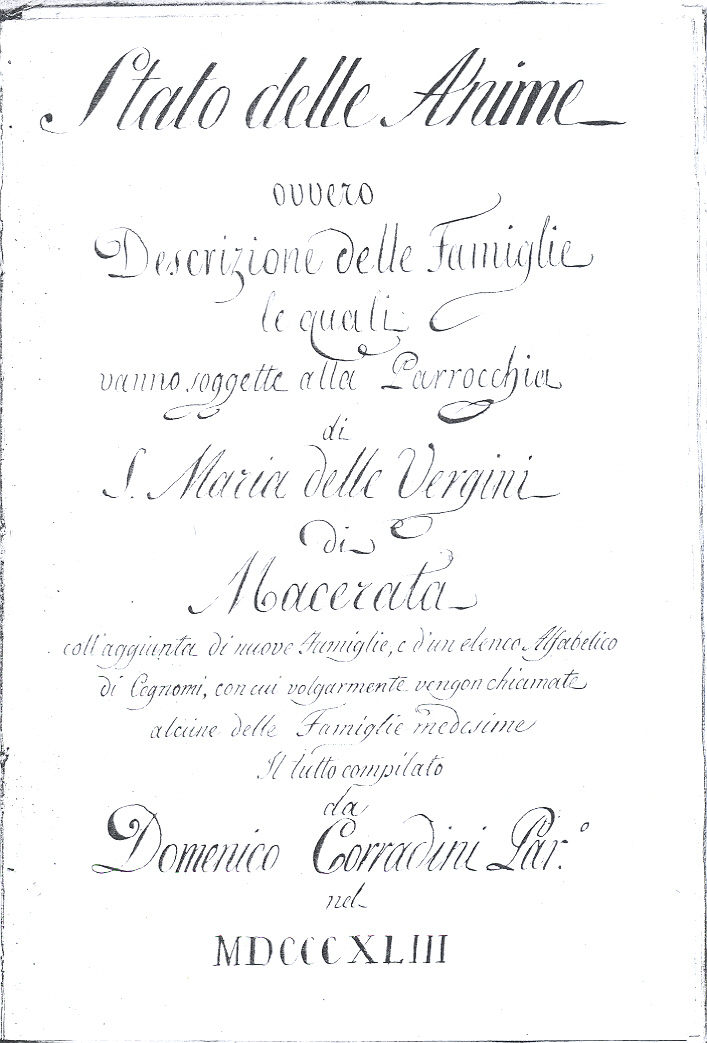 Stato delle Anime
ovvero
Descrizione delle Famiglie
le quali
vanno soggette alla Parrocchia
di
S. Maria delle Vergini
di
Macerata
coll'aggiunta di nuove Famiglie, e d'un elenco Alfabetico
di Cognomi, con cui volgarmente vengon chiamate
alcune delle Famiglie medesime
Il tutto compilato
da
Domenico Corradini Par.°
nel
MDCCCXLIII